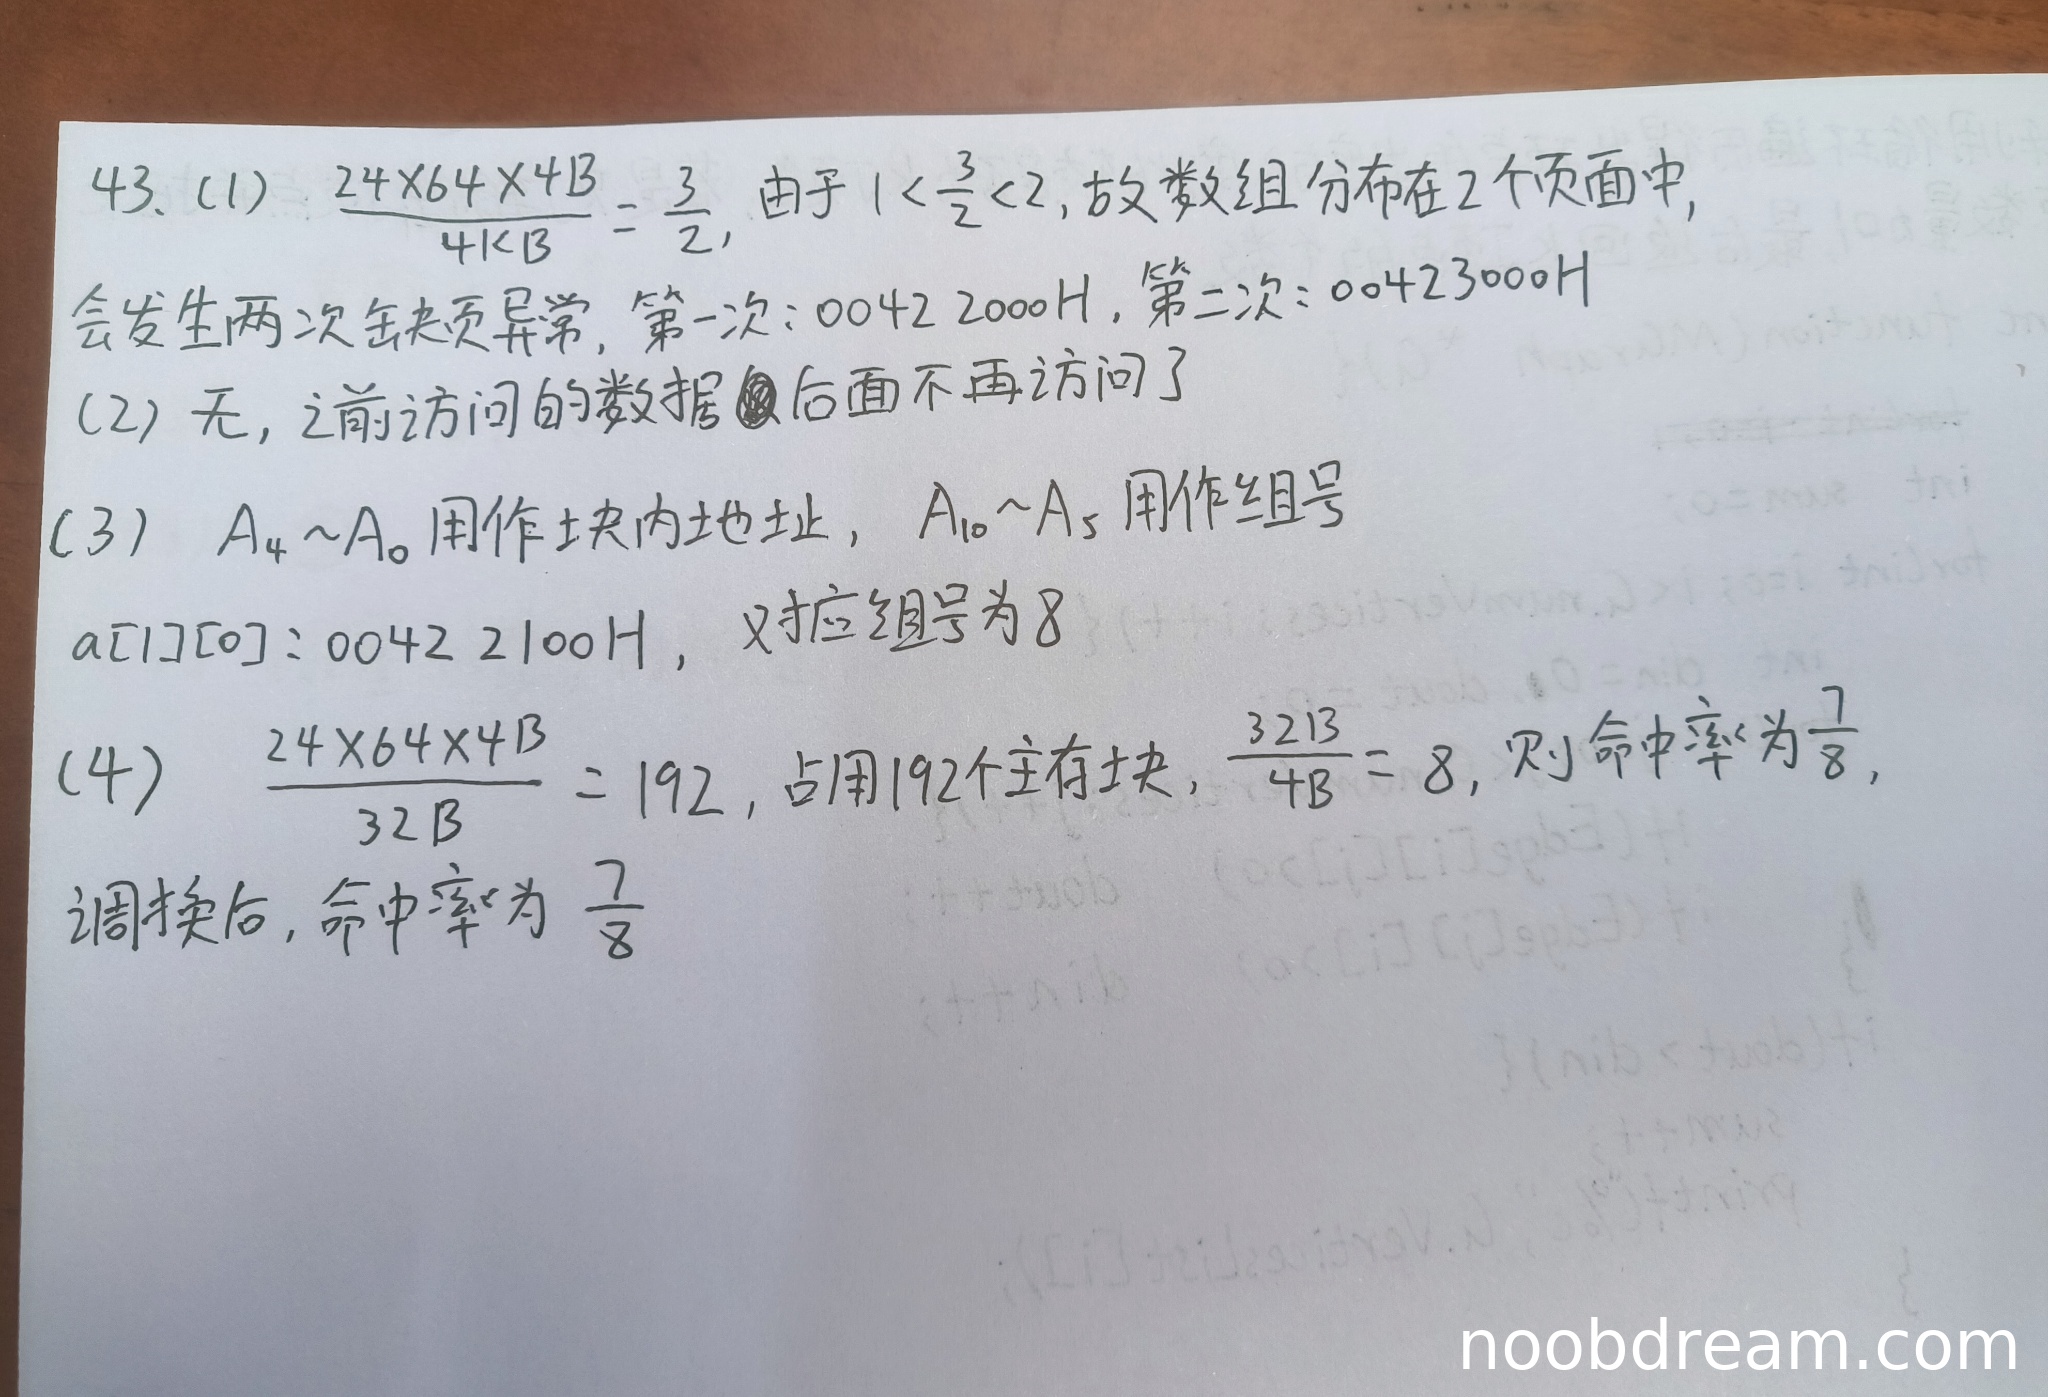 43.(1) 24×64×4B/4KB = 3/2, 由于 1<3/2<2, 故数组分布在2个页面中,
会发生两次缺页异常, 第一次: 0042 2000H, 第二次: 00423000H
(2) 无, 之前访问的数据后面不再访问了
(3) A₄~A₀ 用作块内地址, A₁₀~A₅ 用作组号
a[1][0]: 0042 2100H, 对应组号为8
(4) 24×64×4B/32B = 192, 占用192个主存块, 32B/4B = 8, 则命中率为7/8,
调换后, 命中率为 7/8
noobdream.com